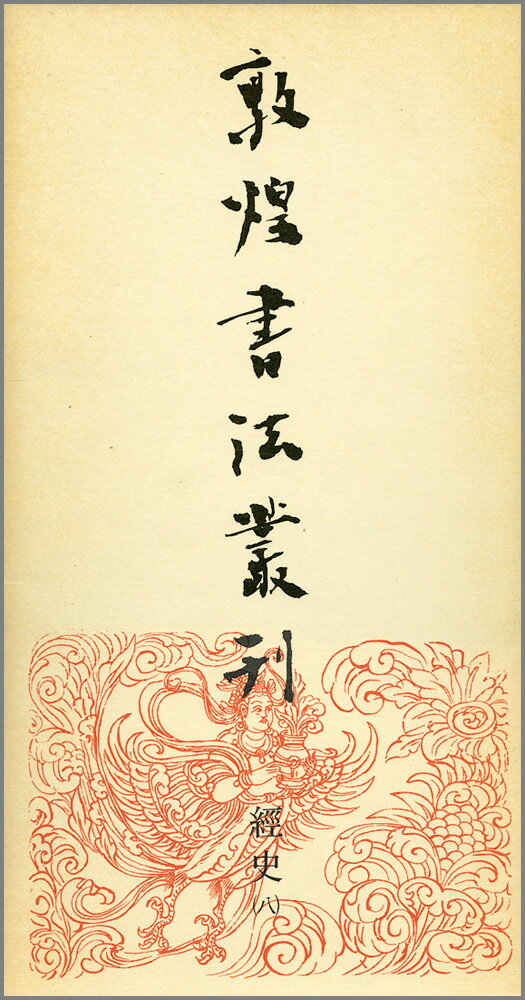 敦煌書法叢刊
經史(八)